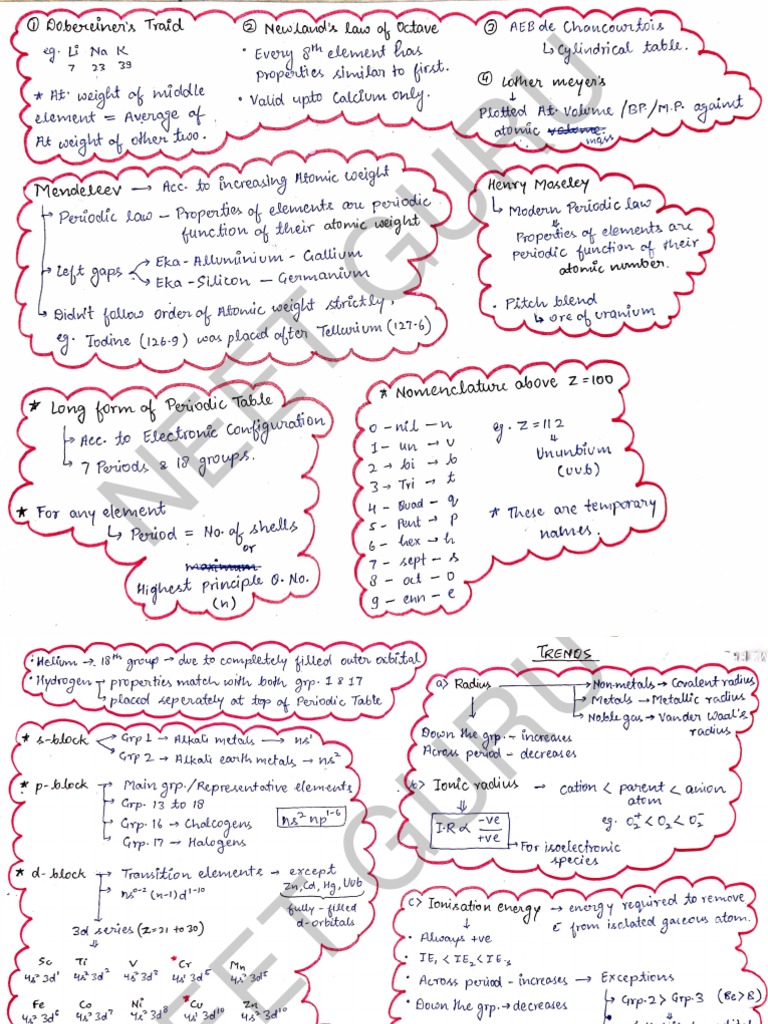 ① Dobereiner's Traid
eg. Li Na K
7 23 39
* At. weight of middle
element = Average of
At weight of other two.
② Newland's law of Octave
• Every 8th element has
properties similar to first.
• Valid upto Calcium only.
③ AEB de Chancourtois
↳ Cylindrical table.
④ Lother meyer's
↓
Plotted At. Volume /B.P./M.P. against
atomic volume mass
Mendeleev → Acc. to increasing Atomic weight
→ Periodic law – Properties of elements are periodic
function of their atomic weight
→ Left gaps
Eka-Alluminium - Gallium
Eka-Silicon – Germanium
→ Didn't follow order of Atomic weight strictly,
eg. Iodine (126.9) was placid after Tellurium (127.6)
Henry Moseley
↳ Modern Periodic law
⇓
Properties of elements are
periodic function of their
atomic number.
• Pitch blend
↳ ore of uranium
* Long form of Periodic Table
→ Acc. to Electronic Configuration
→ 7 Periods & 18 groups.
* For any element
↳ Period = No. of shells
or
maximum
Highest Principle Q. No.
(n)
* Nomenclature above Z=100
0 - nil - n
1 - un → u
2 → bi → b
3 → Tri → t
4 - Quad - q
5 - Pent → p
6 - hex → h
7 - sept - s
8 - oct - o
9 - enn - e
eg. Z = 112
⇓
Ununbium
(uub)
* These are temporary
names.
NEET GURU
• Helium → 18th group → due to completely filled outer orbital
• Hydrogen → properties match with both grp. 1 & 17
→ placed seperately at top of Periodic Table
* s-block
Grp 1 → Alkali metals → ns¹
Grp 2 → Alkali earth metals → ns²
* p-block → Main grp./Representative elements
→ Grp. 13 to 18
→ Grp. 16 → Chalcogens
→ Grp. 17 → Halogens
ns² np¹⁻⁶
* d-block → Transition elements → except
Zn, Cd, Hg, Uub
fully-filled
d-orbitals
→ ns⁰⁻² (n-1)d¹⁻¹⁰
3d series (Z=21 to 30)
⇓
Sc Ti V *Cr Mn
4s²3d¹ 4s²3d² 4s²3d³ 4s¹3d⁵ 4s²3d⁵
Fe Co Ni *Cu Zn
4s²3d⁶ 4s²3d⁷ 4s²3d⁸ 4s¹3d¹⁰ 4s²3d¹⁰
TRENDS
a) Radius
→ Non-metals → Covalent radius
→ Metals → Metallic radius
→ Noble gas → Vander Waal's
radius
Down the grp. - increases
Across period - decreases
b) Ionic radius → cation < parent < anion
atom
eg. O₂⁺ < O₂ < O₂⁻
I.R ∝ -ve/+ve
→ For isoelectronic
species
c) Ionisation energy → energy required to remove
e⁻ from isolated gaceous atom.
• Always +ve
• IE₁ < IE₂ < IE₃
• Across period - increases → Exceptions
• Down the grp. → decreases
→ Grp.2 > Grp.3 (Be>B)
NEET GURU